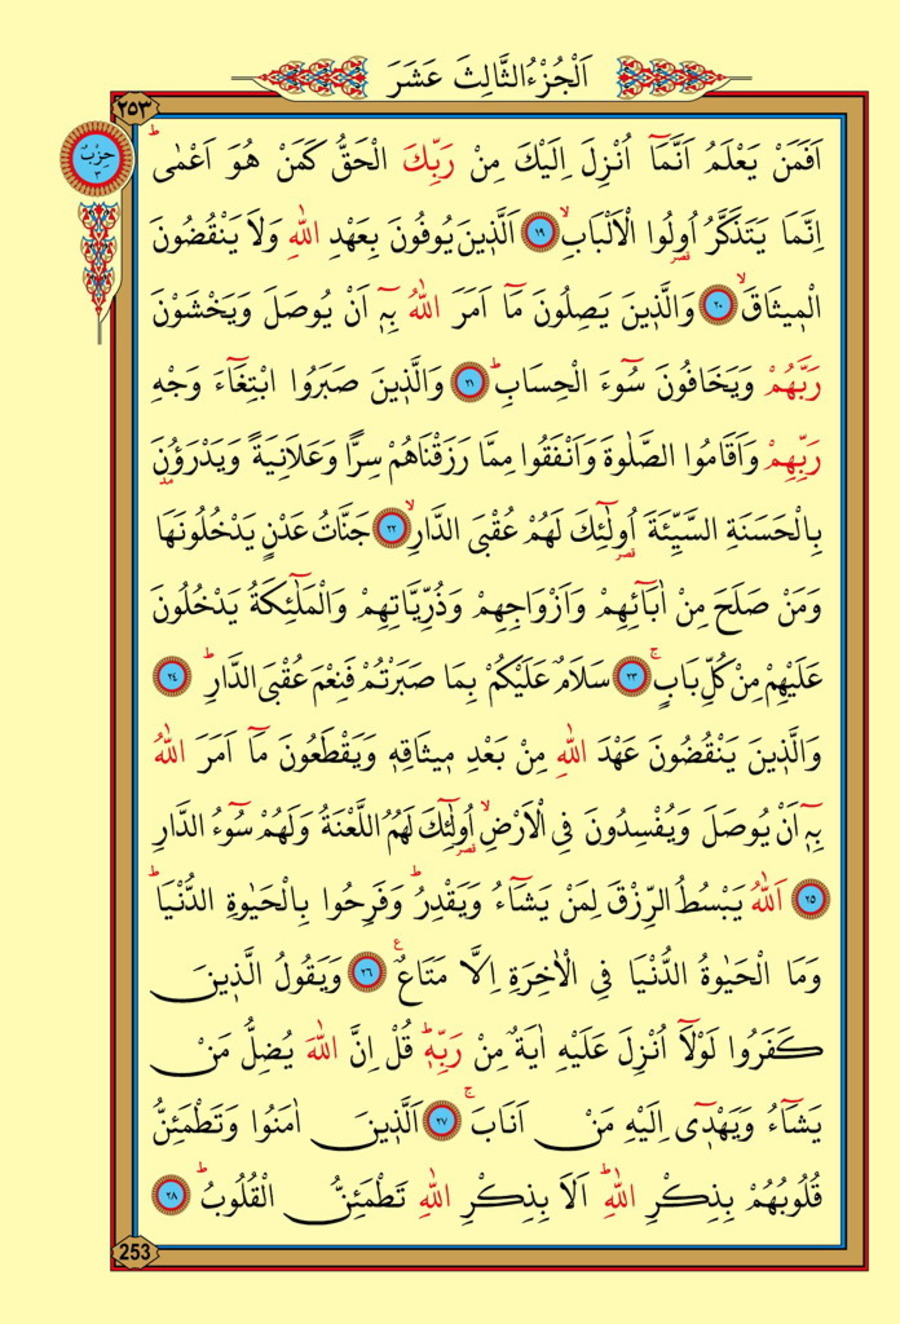 اَلْجُزْءُ الثَّالِثَ عَشَرَ
٢٥٣
حِزْبٌ
٣
اَفَمَنْ يَعْلَمُ اَنَّمَٓا اُنْزِلَ اِلَيْكَ مِنْ رَبِّكَ الْحَقُّ كَمَنْ هُوَ اَعْمٰىۜ
اِنَّمَا يَتَذَكَّرُ اُو۬لُوا الْاَلْبَابِۙ ﴿١٩﴾ اَلَّذ۪ينَ يُوفُونَ بِعَهْدِ اللّٰهِ وَلَا يَنْقُضُونَ
الْم۪يثَاقَۙ ﴿٢٠﴾ وَالَّذ۪ينَ يَصِلُونَ مَٓا اَمَرَ اللّٰهُ بِه۪ٓ اَنْ يُوصَلَ وَيَخْشَوْنَ
رَبَّهُمْ وَيَخَافُونَ سُٓوءَ الْحِسَابِۜ ﴿٢١﴾ وَالَّذ۪ينَ صَبَرُوا ابْتِغَٓاءَ وَجْهِ
رَبِّهِمْ وَاَقَامُوا الصَّلٰوةَ وَاَنْفَقُوا مِمَّا رَزَقْنَاهُمْ سِرًّا وَعَلَانِيَةً وَيَدْرَؤُ۫نَ
بِالْحَسَنَةِ السَّيِّئَةَ اُو۬لٰٓئِكَ لَهُمْ عُقْبَى الدَّارِۙ ﴿٢٢﴾ جَنَّاتُ عَدْنٍ يَدْخُلُونَهَا
وَمَنْ صَلَحَ مِنْ اٰبَٓائِهِمْ وَاَزْوَاجِهِمْ وَذُرِّيَّاتِهِمْ وَالْمَلٰٓئِكَةُ يَدْخُلُونَ
عَلَيْهِمْ مِنْ كُلِّ بَابٍۚ ﴿٢٣﴾ سَلَامٌ عَلَيْكُمْ بِمَا صَبَرْتُمْ فَنِعْمَ عُقْبَى الدَّارِۜ ﴿٢٤﴾
وَالَّذ۪ينَ يَنْقُضُونَ عَهْدَ اللّٰهِ مِنْ بَعْدِ م۪يثَاقِه۪ وَيَقْطَعُونَ مَٓا اَمَرَ اللّٰهُ
بِه۪ٓ اَنْ يُوصَلَ وَيُفْسِدُونَ فِي الْاَرْضِۙ اُو۬لٰٓئِكَ لَهُمُ اللَّعْنَةُ وَلَهُمْ سُٓوءُ الدَّارِ
﴿٢٥﴾ اَللّٰهُ يَبْسُطُ الرِّزْقَ لِمَنْ يَشَٓاءُ وَيَقْدِرُۜ وَفَرِحُوا بِالْحَيٰوةِ الدُّنْيَاۜ
وَمَا الْحَيٰوةُ الدُّنْيَا فِي الْاٰخِرَةِ اِلَّا مَتَاعٌ۟ ﴿٢٦﴾ وَيَقُولُ الَّذ۪ينَ
كَفَرُوا لَوْلَٓا اُنْزِلَ عَلَيْهِ اٰيَةٌ مِنْ رَبِّه۪ۜ قُلْ اِنَّ اللّٰهَ يُضِلُّ مَنْ
يَشَٓاءُ وَيَهْد۪ٓي اِلَيْهِ مَنْ اَنَابَۚ ﴿٢٧﴾ اَلَّذ۪ينَ اٰمَنُوا وَتَطْمَئِنُّ
قُلُوبُهُمْ بِذِكْرِ اللّٰهِۜ اَلَا بِذِكْرِ اللّٰهِ تَطْمَئِنُّ الْقُلُوبُۜ ﴿٢٨﴾
253